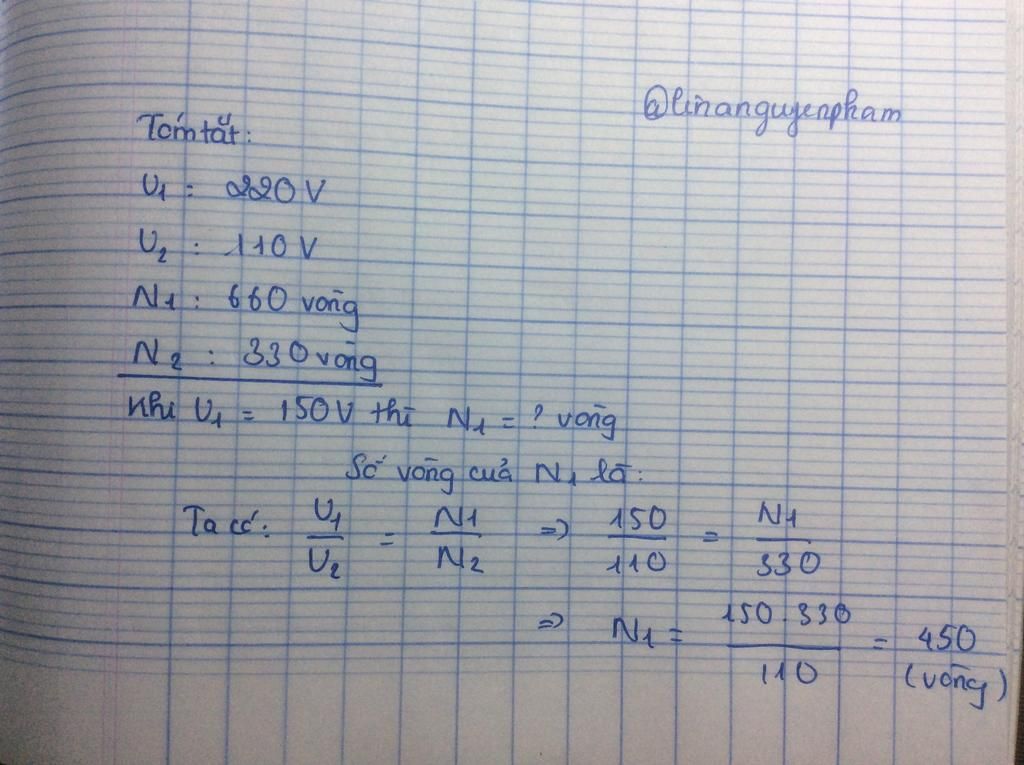 @linanguyenpham
Tóm tắt:
U1 = 220 V
U2 : 110 V
N1 : 660 vòng
N2 : 330 vòng
Khi U1 = 150V thì N1 = ? vòng
Số vòng của N1 là:
Ta có: U1/U2 = N1/N2 => 150/110 = N1/330
=> N1 = 150.330/110 = 450 (vòng)